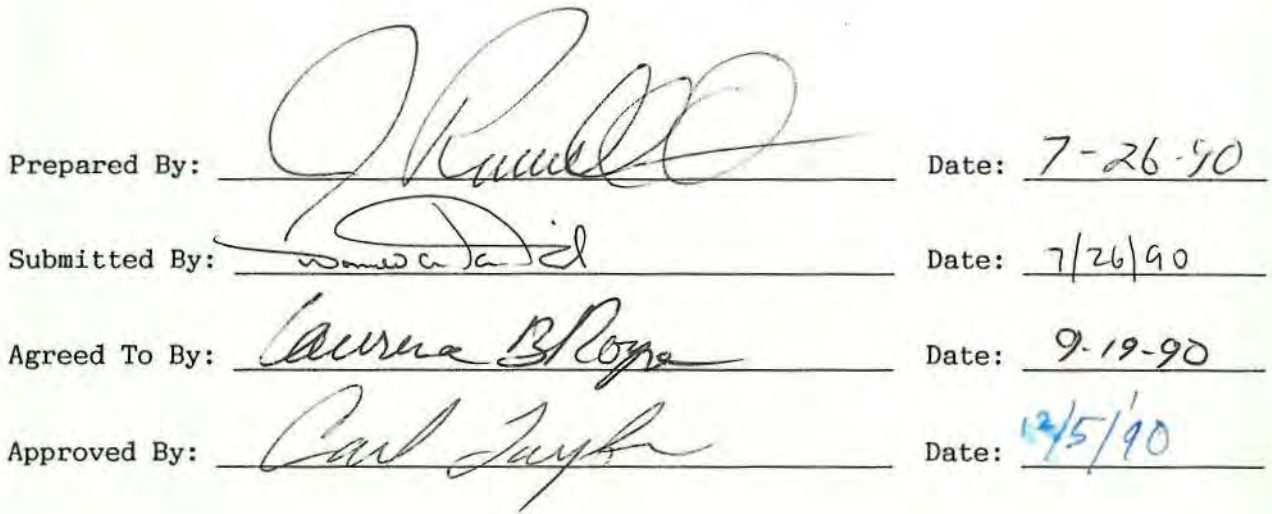 Prepared By: J Date: 7-26-90
Submitted By: Date: 7/26/90
Agreed To By: B Date: 9-19-90
Approved By: Carl Taylor Date: 12/5/90